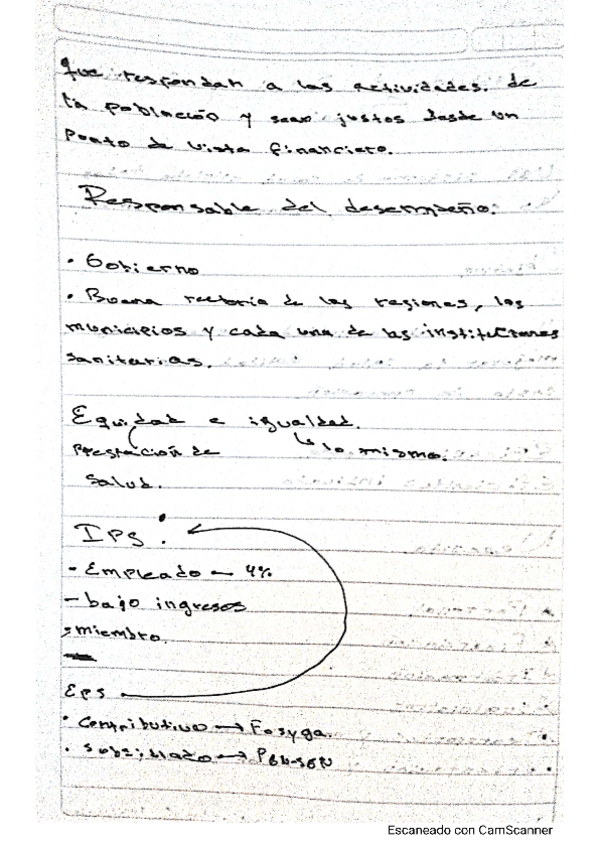 que respondan a las actividades. de
la población y sean justos desde un
punto de vista financiero.
Responsable del desempeño.
• Gobierno
• Buena rectoria de las regiones, los
municipios y cada una de las instituciones
sanitarias.
Equidad e igualdad.
prestación de ↳ lo mismo.
salud.
IPS :
- Empleado — 4%
- bajo ingresos
- miembro.
Eps
• Contributivo → Fosyga.
• Subsidiado →
Escaneado con CamScanner